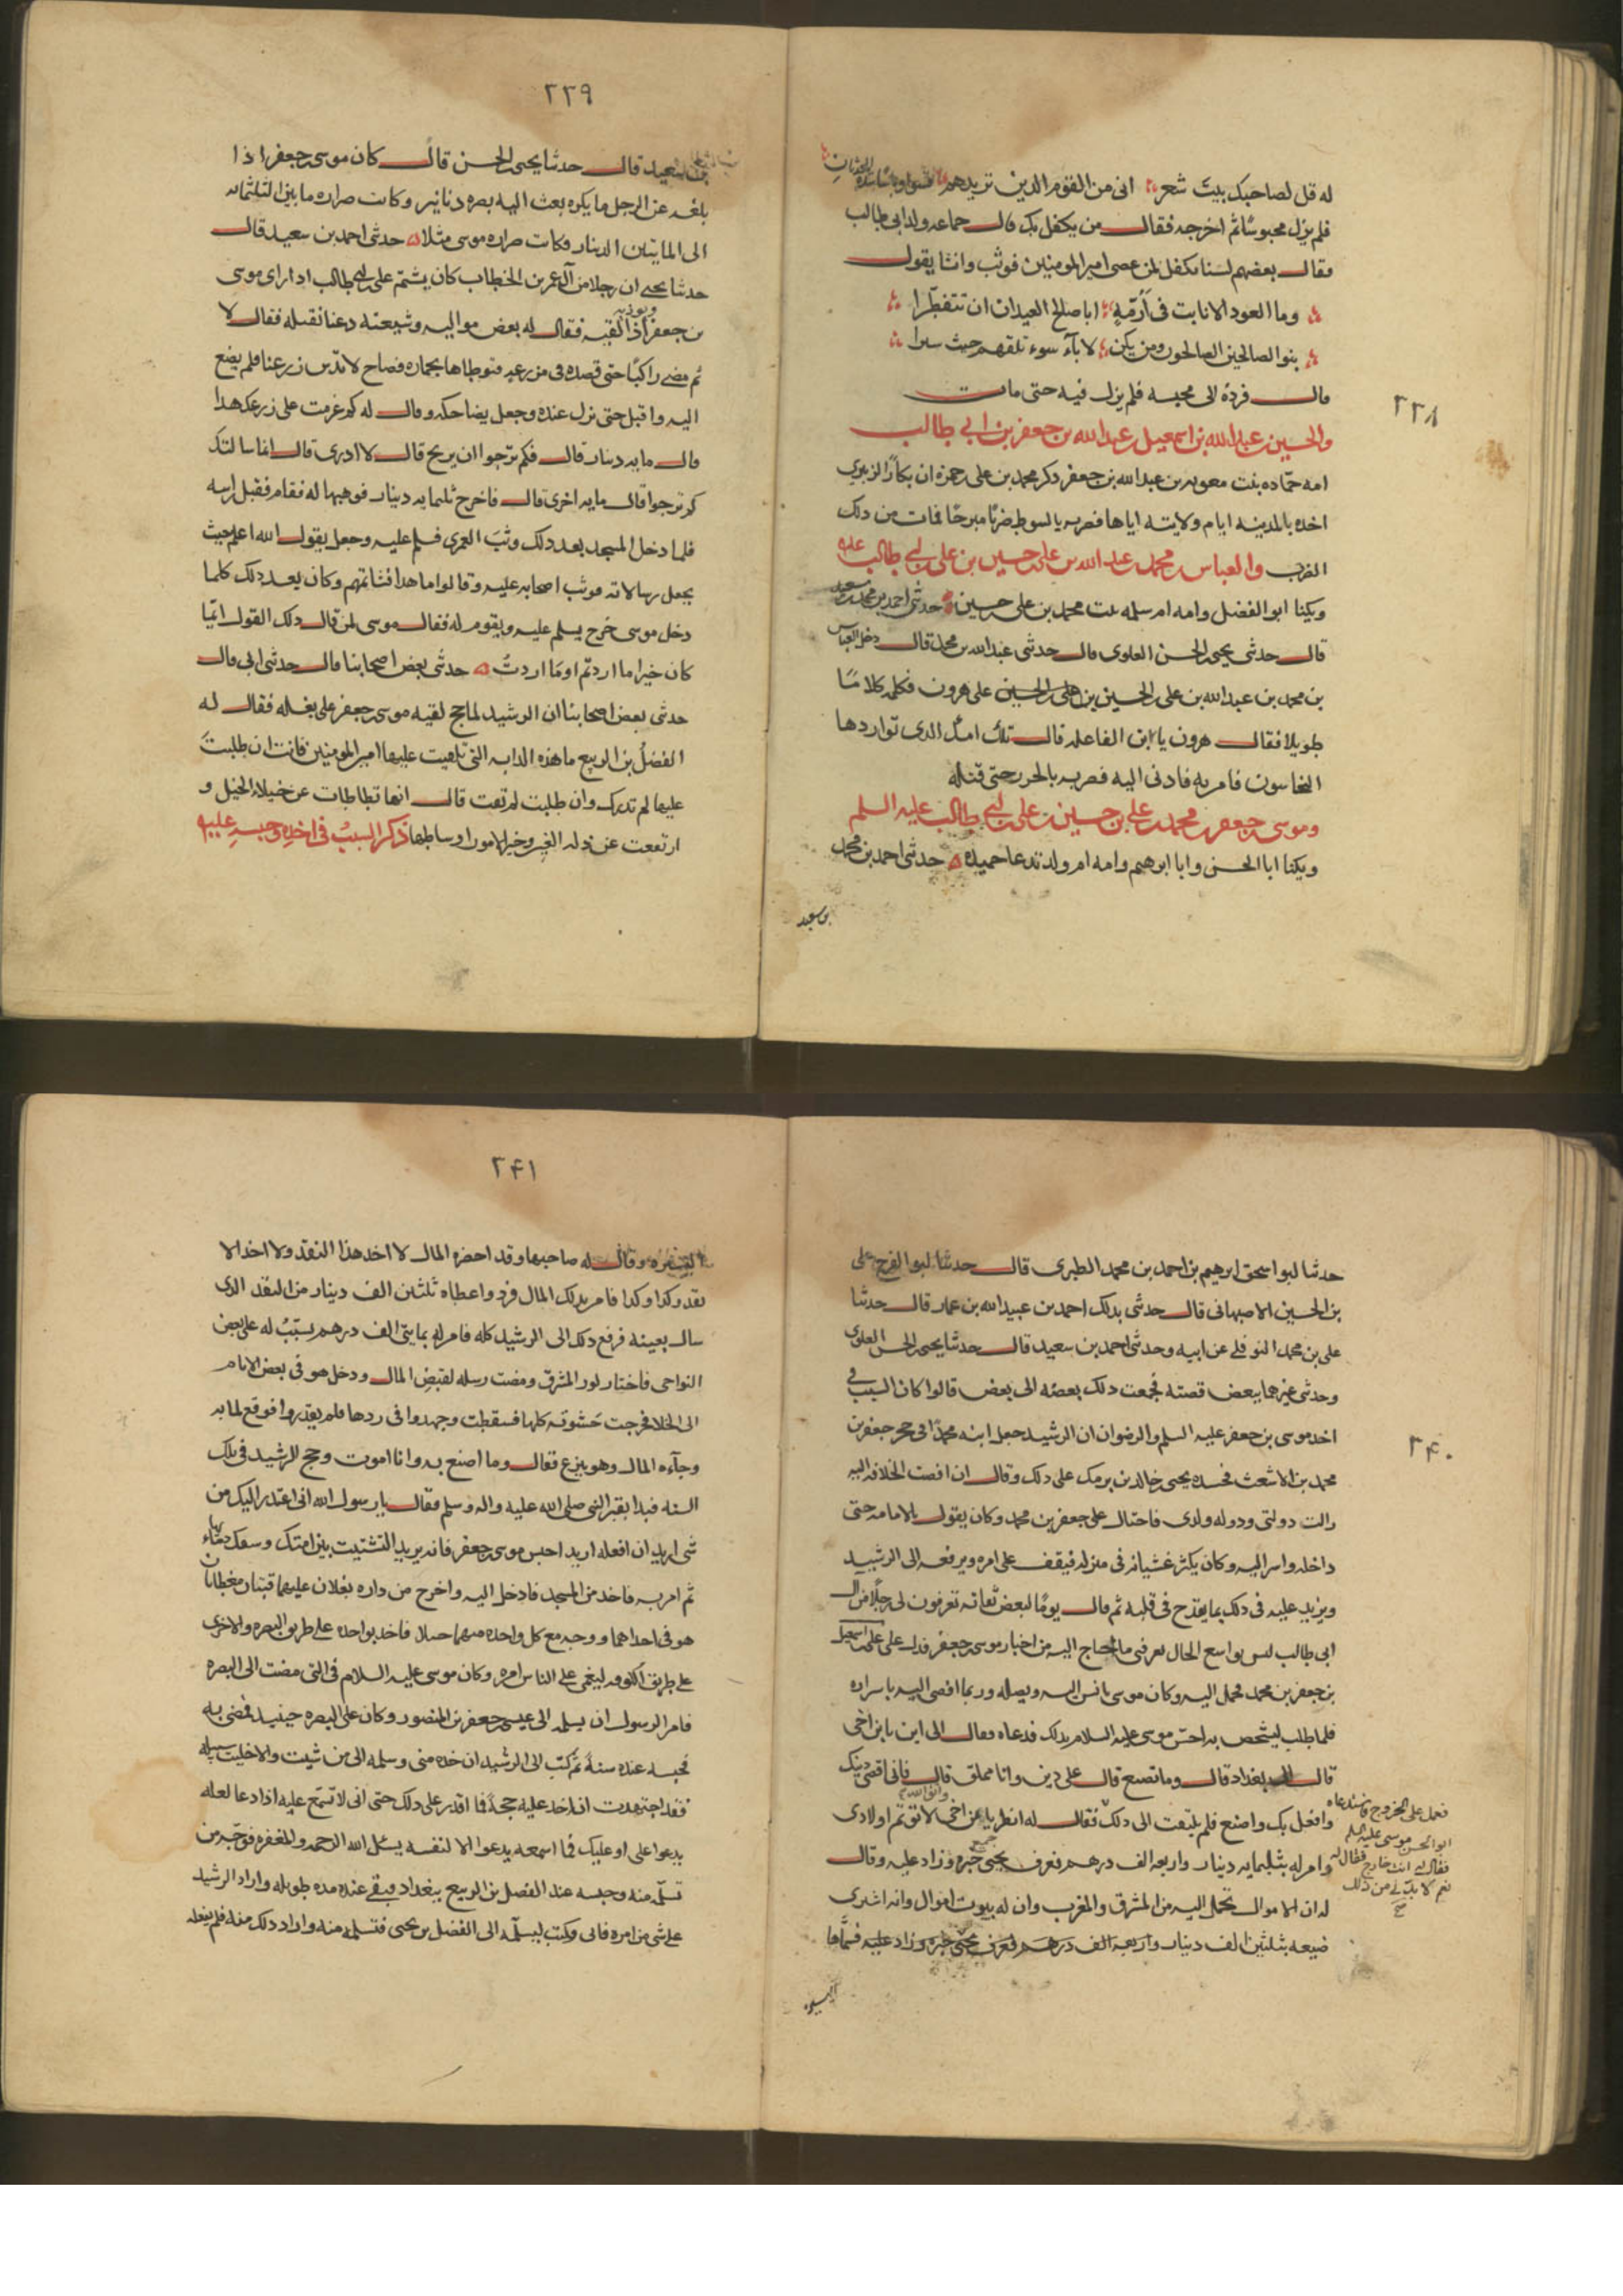 ٢٣٨
له قل لصاحبك بيت شعر انى من القوم الذين تزيدهم قسوا وبأسا شدة الحدثان
فلم يزل محبوسًا ثم اخرجه فقال من يكفل بك قال جماعه ولد ابى طالب
فقال بعضهم لسنا نكفل لمن عصى امير المومنين فوثب وانشا يقول
وما العود الا نابت فى أرمّةٍ ابا صالح العيدان ان تتفطّرا
بنو الصالحين الصالحون ومن يكن لابآء سوء تلقهم حيث سيرا
قال فردة الى محبسه فلم يزل فيه حتى مات
والحسين بن عبد الله بن اسمعيل بن عبد الله بن جعفر بن ابي طالب
امه حمّاده بنت معويه بن عبد الله بن جعفر ذكر محمد بن على بن حمزه ان بكارًا الزبيرى
اخذه بالمدينه ايام ولايته اياها فضربه بالسوط ضربًا مبرحًا فمات من ذلك
الضرب والعباس بن محمد بن عبد الله بن على بن حسين بن على بن ابي طالب عليه
ويكنا ابو الفضل وامه ام سلمه بنت محمد بن على بن حسين حدثنى احمد بن محمد بن سعيد
قال حدثنى يحيى بن الحسن العلوى قال حدثنى عبد الله بن محمد قال دخل العباس
بن محمد بن عبد الله بن على بن الحسين بن على بن الحسين على هرون فكلمه كلامًا
طويلا فقال هرون يا ابن الفاعله قال تلك امك الذى تواردها
النخاسون فامر به فادنى اليه فضربه بالجرز حتى قتله
وموسى بن جعفر بن محمد بن على بن حسين بن على بن ابي طالب عليه السلم
ويكنا ابا الحسن وابا ابرهيم وامه ام ولد تدعا حميده حدثنى احمد بن محمد
بن سعيد
٢٣٩
بن سعيد قال حدثنا يحيى بن الحسن قال كان موسى بن جعفر اذا
بلغه عن الرجل ما يكره بعث اليه بصره دنانير وكانت صراره ما بين الثلثمائه
الى المايتين الدينار فكانت صراره موسى مثلا حدثنى احمد بن سعيد قال
حدثنا يحيى ان رجلا من آل عمر بن الخطاب كان يشتم على بن ابي طالب اذا راى موسى
بن جعفر ويوذيه اذا لقيه فقال له بعض مواليه وشيعته دعنا نقتله فقال لا
ثم مضى راكبًا حتى قصده فى مزرعه فتوطاها بحماره فصاح لا تدس زرعنا فلم يصغ
اليه واقبل حتى نزل عنده وجعل يضاحكه وقال له كم غرمت على زرعك هذا
قال مايه دينار قال فكم ترجوا ان يربح قال لا ادرى قال انما سالتك
كم ترجوا قال مايه اخرى قال فاخرج ثلثمايه دينار فوهبها له فقام فقبل راسه
فلما دخل المسجد بعد ذلك وثب العمرى فسلم عليه وجعل يقول الله اعلم حيث
يجعل رسالاته فوثب اصحابه عليه وقالوا ما هذا فشاتمهم وكان بعد ذلك كلما
دخل موسى خرج يسلم عليه ويقوم له فقال موسى لمن قال ذلك القول ايّما
كان خيرا ما اردتم او ما اردتُ حدثنى بعض اصحابنا قال حدثنى ابى قال
حدثنى بعض اصحابنا ان الرشيد لما حج لقيه موسى بن جعفر على بغله فقال له
الفضل بن الربيع ما هذه الدابه التى تلقيت عليها امير المومنين فانت ان طلبت
عليها لم تدرك وان طلبت لم تفت قال انها تطاطات عن خيلاء الخيل و
ارتفعت عن ذله العير وخير الامور اوساطها ذكر السبب فى اخذه وحبسه عليه
٢٤٠
حدثنا ابو اسحق ابرهيم بن احمد بن محمد الطبرى قال حدثنا ابو الفرج على
بن الحسين الاصبهانى قال حدثنى بذلك احمد بن عبيد الله بن عمار قال حدثنا
على بن محمد النوفلى عن ابيه وحدثنى احمد بن سعيد قال حدثنا يحيى بن الحسن العلوى
وحدثنى غيرهما ببعض قصته فجمعت ذلك بعضه الى بعض قالوا كان السبب في
اخذ موسى بن جعفر عليه السلم والرضوان ان الرشيد جعل ابنه محمدًا فى حجر جعفر بن
محمد بن الاشعث فحسده يحيى بن خالد بن برمك على ذلك وقال ان افضت الخلافه اليه
زالت دولتى ودوله ولدى فاحتال على جعفر بن محمد وكان يقول بالامامه حتى
داخله واسر اليه وكان يكثر غشيانه فى منزله فيقف على امره ويرفعه الى الرشيد
ويزيد عليه فى ذلك بما يقدح فى قلبه ثم قال يومًا لبعض ثقاته تعرفون لى رجلًا من ال
ابى طالب ليس بواسع الحال يعرفنى ما احتاج اليه من اخبار موسى بن جعفر فدل على على بن اسمعيل
بن جعفر بن محمد فحمل اليه وكان موسى يانس اليه ويصله وربما افضى اليه باسراره
فلما طلب ليشخص به احسّ موسى عليه السلام بذلك فدعاه فقال الى اين يا بن اخى
قال الى بغداد قال وما تصنع قال على دين وانا مملق قال فانى اقضى دينك
وافعل بك واصنع فلم يلتفت الى ذلك فقال له انظر يا بن اخى واتق الله لا توتم اولادى
فعمل على الخروج فاستدعاه
ابو الحسن موسى عليه السلم
فقال له انت خارج فقال له
نعم لا بدّ لى من ذلك
صح
وامر له بثلثمايه دينار واربعه الف درهم فعرف يحيى جميع خبره وزاد عليه وقال
له ان الاموال تحمل اليه من المشرق والمغرب وان له بيوت اموال وانه اشترى
ضيعه بثلثين الف دينار واربعه الف درهم فعرف يحيى خبره وزاد عليه فسمّاها
اليسيره
٢٤١
اليسيره وقال له صاحبها وقد احضره المال لا اخذ هذا النقد ولا اخذ الا
نقد كذا وكذا فامر بذلك المال فرد واعطاه ثلثين الف دينار من النقد الذى
سال بعينه فرفع ذلك الى الرشيد كله فامر له بمايتى الف درهم يسبّبُ له على بعض
النواحى فاختار كور المشرق ومضت رسله لقبض المال ودخل هو فى بعض الايام
الى الخلا فزحرت حشوته كلها فسقطت وجهدوا فى ردها فلم يقدروا فوقع لما به
وجآءه المال وهو ينزع فقال وما اصنع به وانا اموت وحج الرشيد فى تلك
السنه فبدا بقبر النبى صلى الله عليه واله وسلم فقال يا رسول الله انى اعتذر اليك من
شى اريد ان افعله اريد احبس موسى بن جعفر فانه يريد التشتيت بين امتك وسفك دمائها
ثم امر به فاخذ من المسجد فادخل اليه واخرج من داره بغلان عليهما قبتان مغطاتان
هو فى احداهما ووجه مع كل واحده منهما خيلا فاخذ بواحده على طريق البصره والاخرى
على طريق الكوفه ليعمى على الناس امره وكان موسى عليه السلام فى التى مضت الى البصره
فامر الرسول ان يسلمه الى عيسى بن جعفر بن المنصور وكان على البصره حينيذ فمضى به
فحبسه عنده سنةً ثم كتب الى الرشيد ان خذه منى وسلمه الى من شيت والا خليت سبيله
فقد اجتهدت ان اخذ عليه حجةً فما اقدر على ذلك حتى انى لا تسمّع عليه اذا دعا لعله
يدعوا على او عليك فما اسمعه يدعوا الا لنفسه يسئل الله الرحمه والمغفره فوجّه من
تسلمه منه وحبسه عند الفضل بن الربيع ببغداد فبقى عنده مده طويله واراد الرشيد
على شى من امره فابى وكتب ليسلّمه الى الفضل بن يحيى فتسلمه منه واراد ذلك منه فلم يفعله